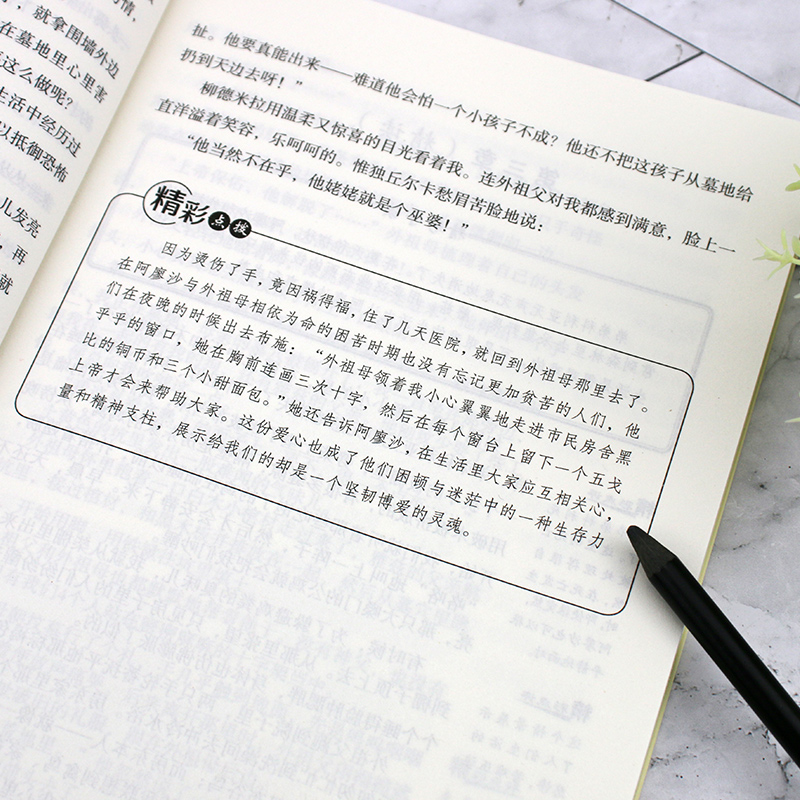 情，
，就拿围墙外边
在墓地里心里害
这么做呢？
生活中经历过
以抵御恐怖
儿发亮
，再
就
扯。他要真能出来——难道他会怕一个小孩子不成？他还不把这孩子从墓地给
扔到天边去呀！”
柳德米拉用温柔又惊喜的目光看着我。连外祖父对我都感到满意，脸上一
直洋溢着笑容，乐呵呵的。惟独丘尔卡愁眉苦脸地说：
“他当然不在乎，他姥姥就是个巫婆！”
精彩点拨
因为烫伤了手，竟因祸得福，住了几天医院，就回到外祖母那里去了。
在阿廖沙与外祖母相依为命的困苦时期也没有忘记更加贫苦的人们，他
们在夜晚的时候出去布施：“外祖母领着我小心翼翼地走进市民房舍黑
乎乎的窗口，她在胸前连画三次十字，然后在每个窗台上留下一个五戈
比的铜币和三个小甜面包。”她还告诉阿廖沙，在生活里大家应互相关心，
上帝才会来帮助大家。这份爱心也成了他们困顿与迷茫中的一种生存力
量和精神支柱，展示给我们的却是一个坚韧博爱的灵魂。